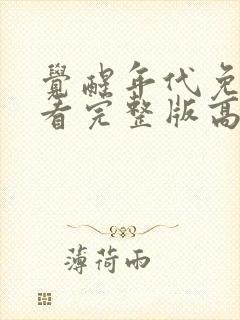 覺醒年代免
看完整版高
薄荷雨